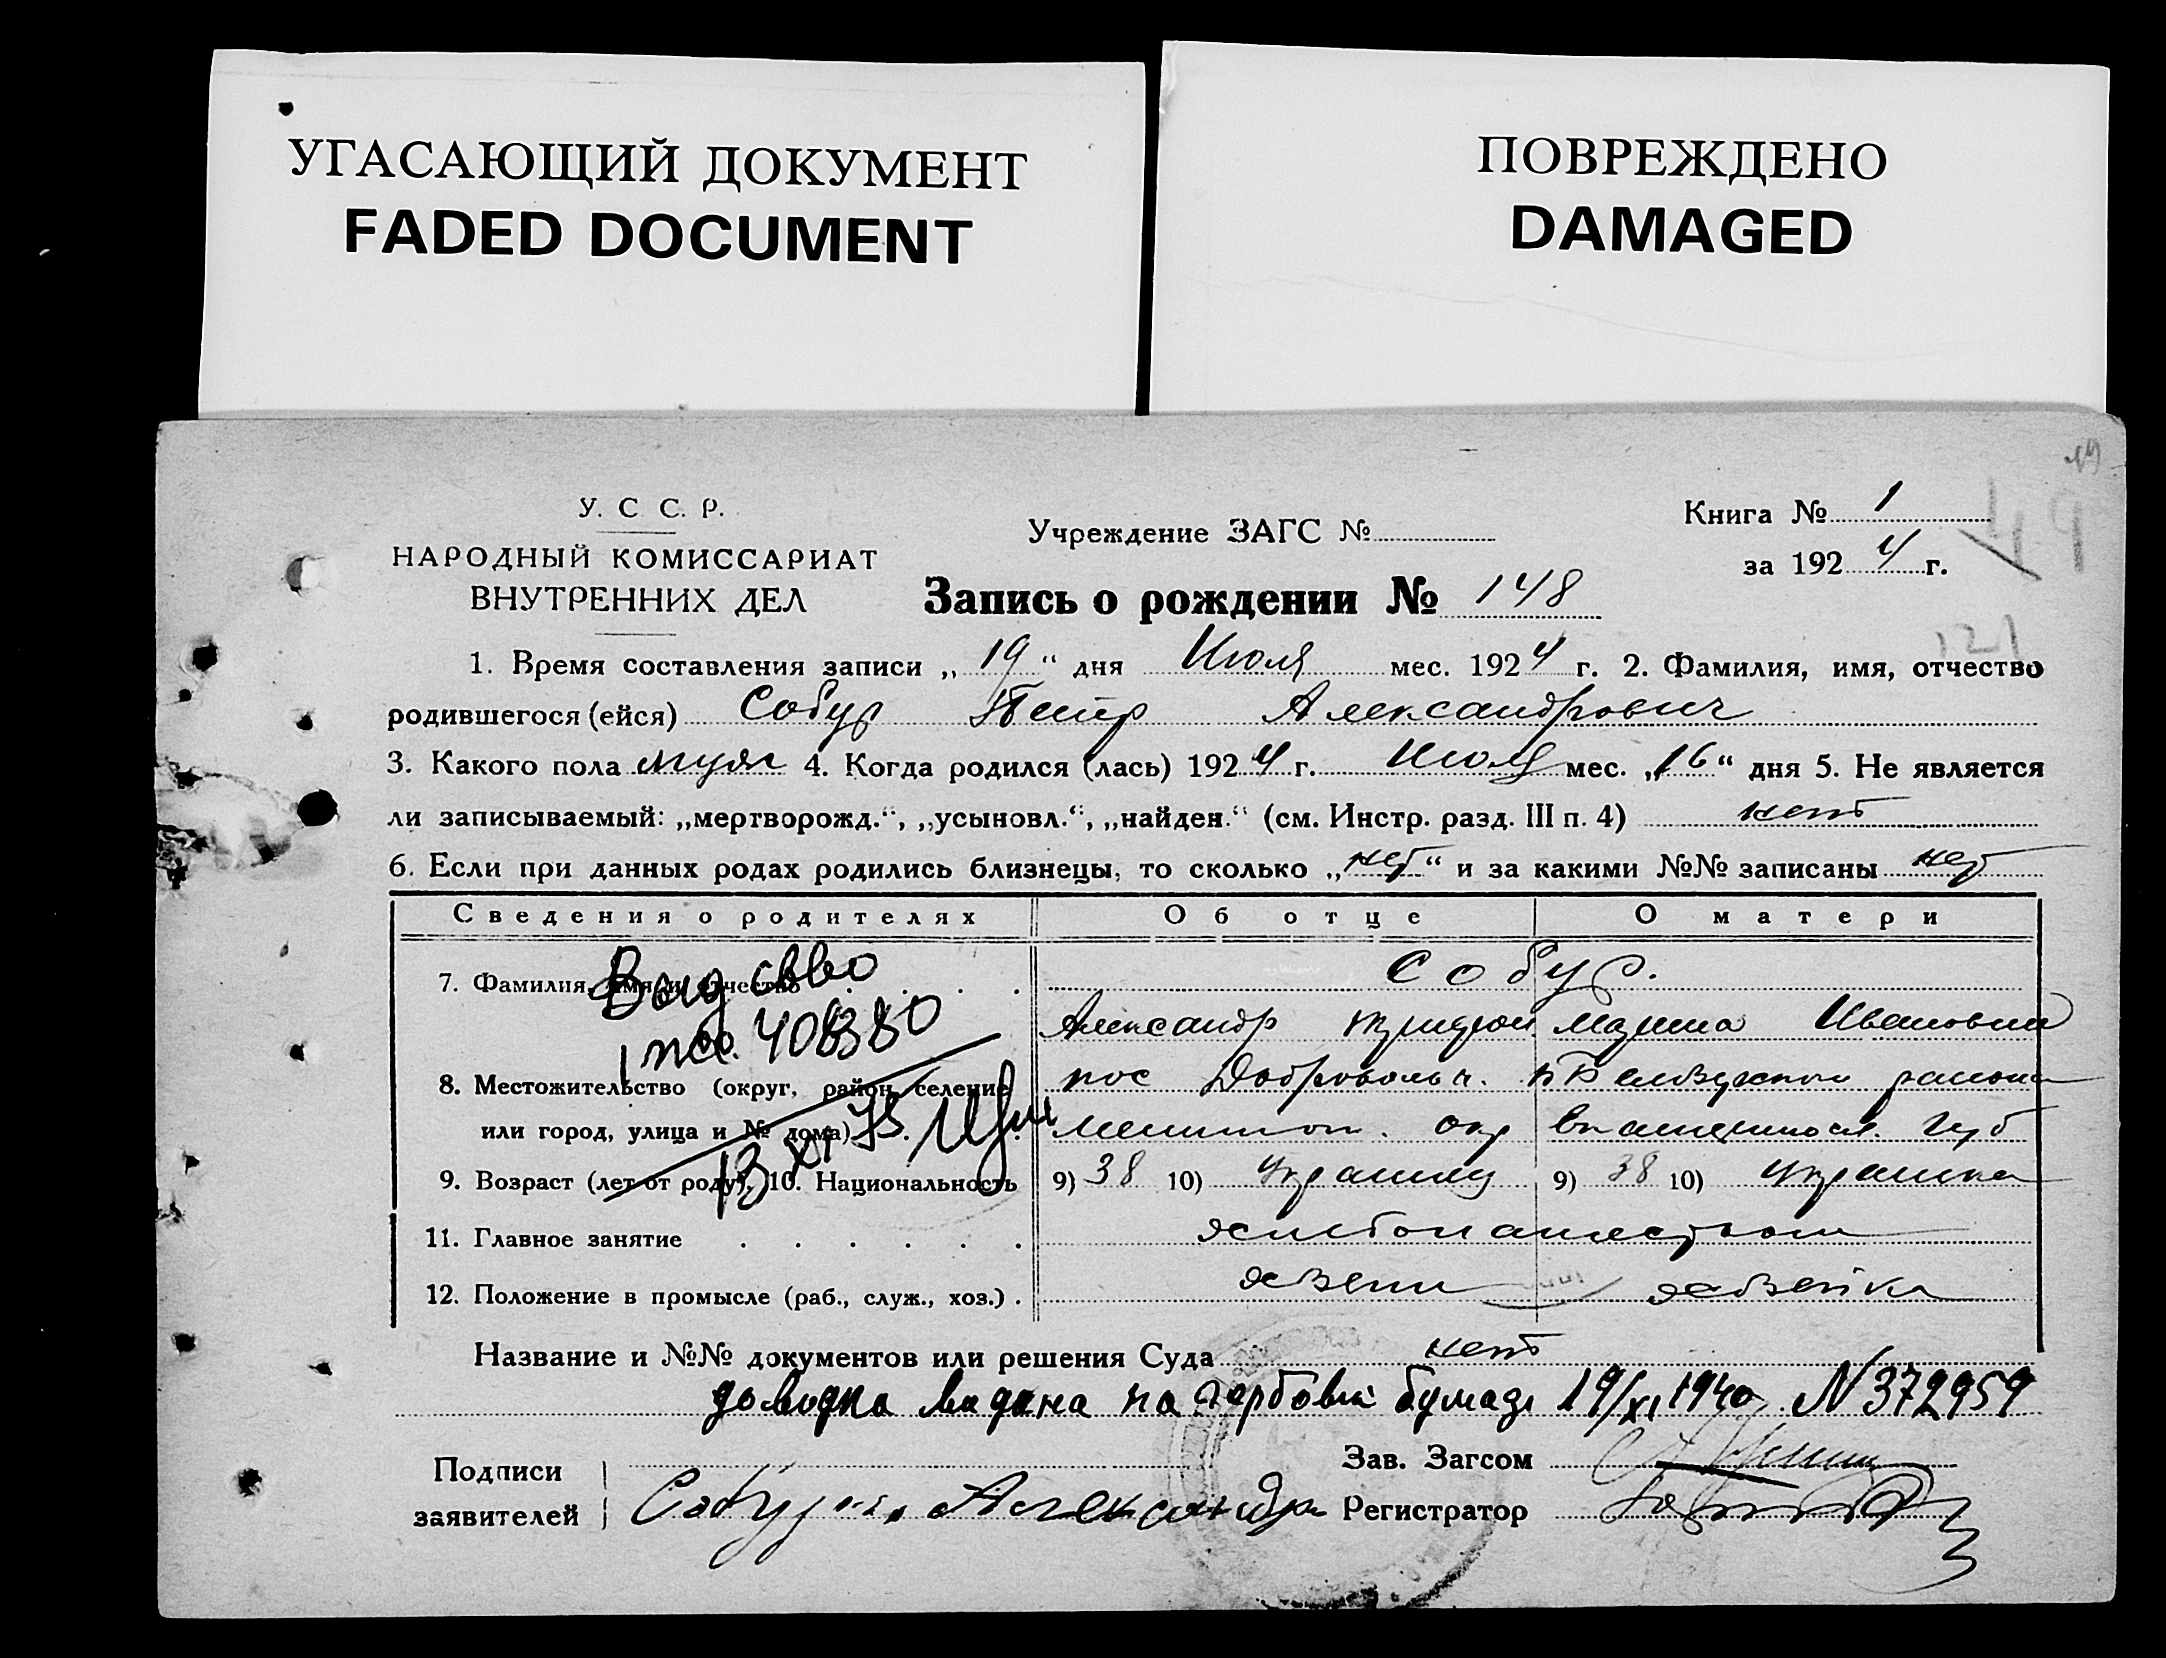 УГАСАЮЩИЙ ДОКУМЕНТ
FADED DOCUMENT
ПОВРЕЖДЕНО
DAMAGED
У. С С. Р.
НАРОДНЫЙ КОМИССАРИАТ
ВНУТРЕННИХ ДЕЛ
Учреждение ЗАГС №
Книга № 1
за 1924 г.
Запись о рождении № 148
1. Время составления записи „19“ дня Июля мес. 1924 г. 2. Фамилия, имя, отчество
родившегося (ейся) Собур Петр Александрович
3. Какого пола муж 4. Когда родился (лась) 1924 г. Июля мес. „16“ дня 5. Не является
ли записываемый: „мертворожд.“, „усыновл.“, „найден.“ (см. Инстр. разд. III п. 4) нет
6. Если при данных родах родились близнецы, то сколько „нет“ и за какими №№ записаны нет
Сведения о родителях Об отце О матери
7. Фамилия, имя и отчество Собур.
Выд св-во
408380
Александр Марина Ивановна
8. Местожительство (округ, район, селение пос Доброволь района
или город, улица и № дома) окр Губ
13 XI 73.
9. Возраст (лет от роду). 10. Национальность 9) 38 10) Украинец 9) 38 10) Украинка
11. Главное занятие хлебопашеством
12. Положение в промысле (раб., служ., хоз.) хозяин хозяйка
Название и №№ документов или решения Суда нет
довидка видана на гербовій бумазі 19/XI 1940 N 372959
Подписи
заявителей
Александр
Зав. Загсом
Регистратор